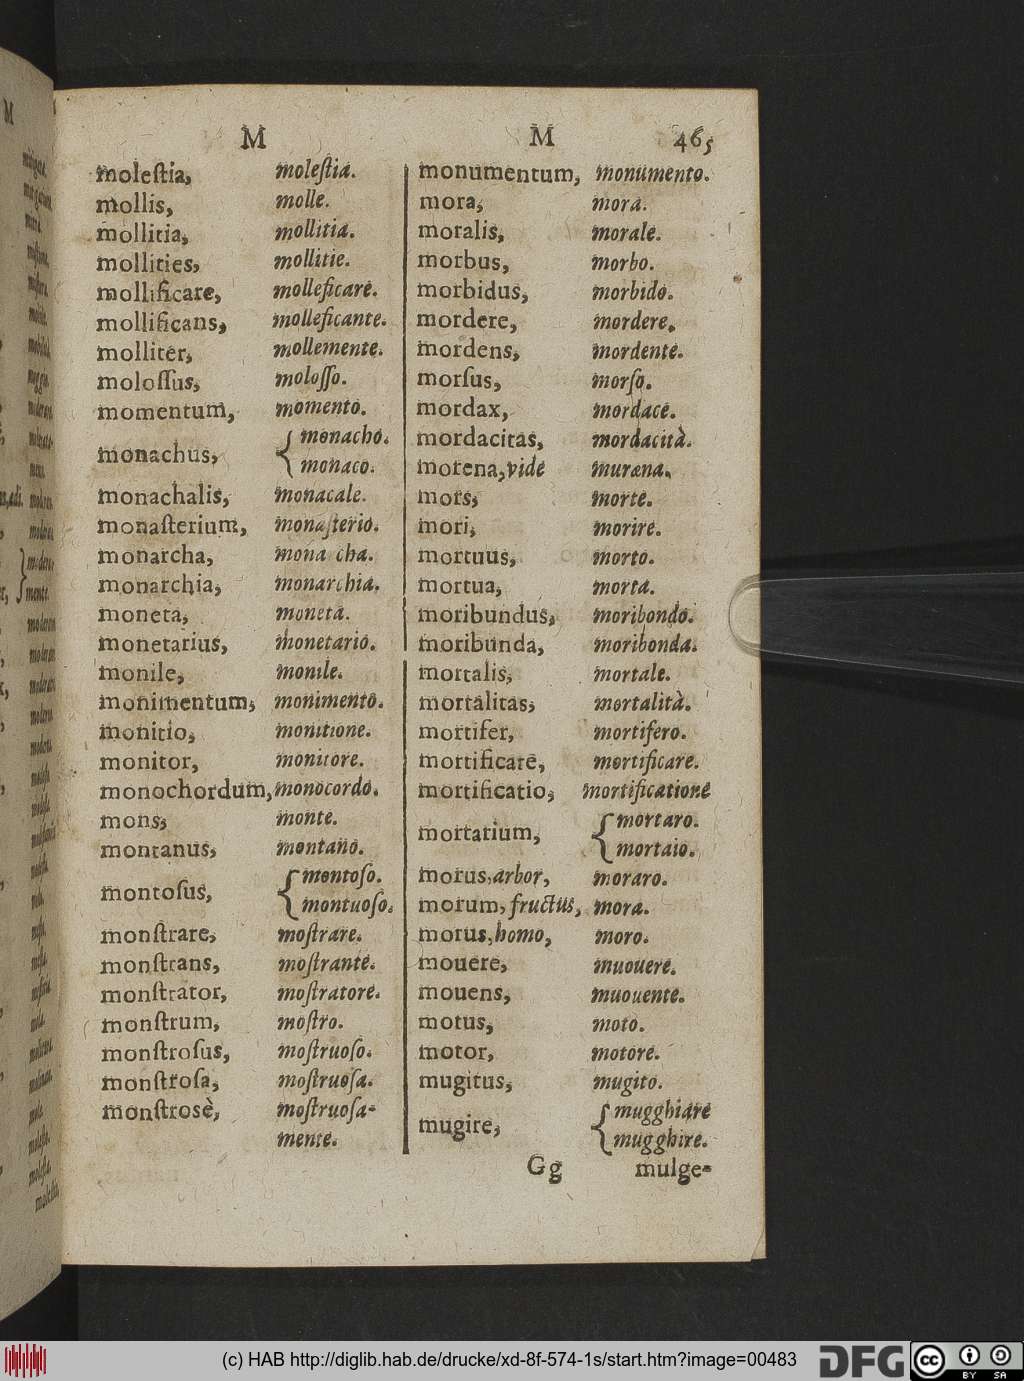 M M 465
moleſtia, moleſtia.
mollis, molle.
mollitia, mollitia.
mollities, mollitie.
mollificare, molleficare.
mollificans, molleficante.
molliter, mollemente.
moloſſus, moloſſo.
momentum, momento.
monachus, { monacho.
monaco.
monachalis, monacale.
monaſterium, monaſterio.
monarcha, mona cha.
monarchia, monarchia.
moneta, moneta.
monetarius, monetario.
monile, monile.
monimentum, monimento.
monitio, monitione.
monitor, monitore.
monochordum, monocordo.
mons, monte.
montanus, montano.
montoſus, { montoſo.
montuoſo.
monſtrare, moſtrare.
monſtrans, moſtrante.
monſtrator, moſtratore.
monſtrum, moſtro.
monſtroſus, moſtruoſo.
monſtroſa, moſtruoſa.
monſtrosè, moſtruoſa-
mente.
monumentum, monumento.
mora, mora.
moralis, morale.
morbus, morbo.
morbidus, morbido.
mordere, mordere.
mordens, mordente.
morſus, morſo.
mordax, mordace.
mordacitas, mordacità.
morena, vide muræna.
mors, morte.
mori, morire.
mortuus, morto.
mortua, morta.
moribundus, moribondo.
moribunda, moribonda.
mortalis, mortale.
mortalitas, mortalità.
mortifer, mortifero.
mortificare, mortificare.
mortificatio, mortificatione
mortarium, { mortaro.
mortaio.
morus, arbor, moraro.
morum, fructus, mora.
morus, homo, moro.
mouere, muouere.
mouens, muouente.
motus, moto.
motor, motore.
mugitus, mugito.
mugire, { mugghiare
mugghire.
Gg mulge-
(c) HAB http://diglib.hab.de/drucke/xd-8f-574-1s/start.htm?image=00483
DFG cc BY SA